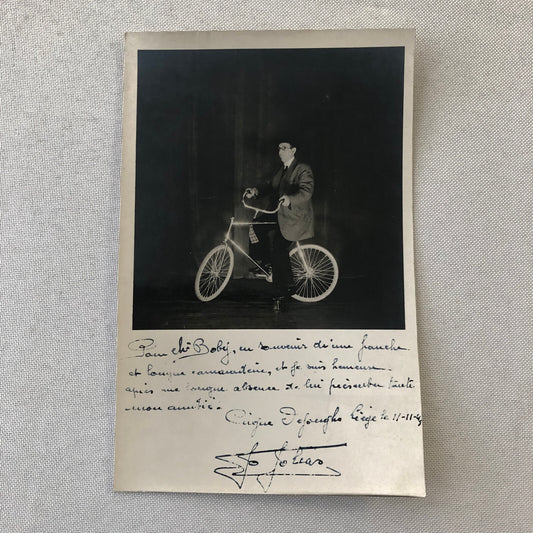 Pour Mr Boby, en souvenir d'une franche
et longue camaraderie, et je suis heureux
après une longue absence de lui présenter toute
mon amitié.
Cirque Dejonghe Liège le 11-11-4